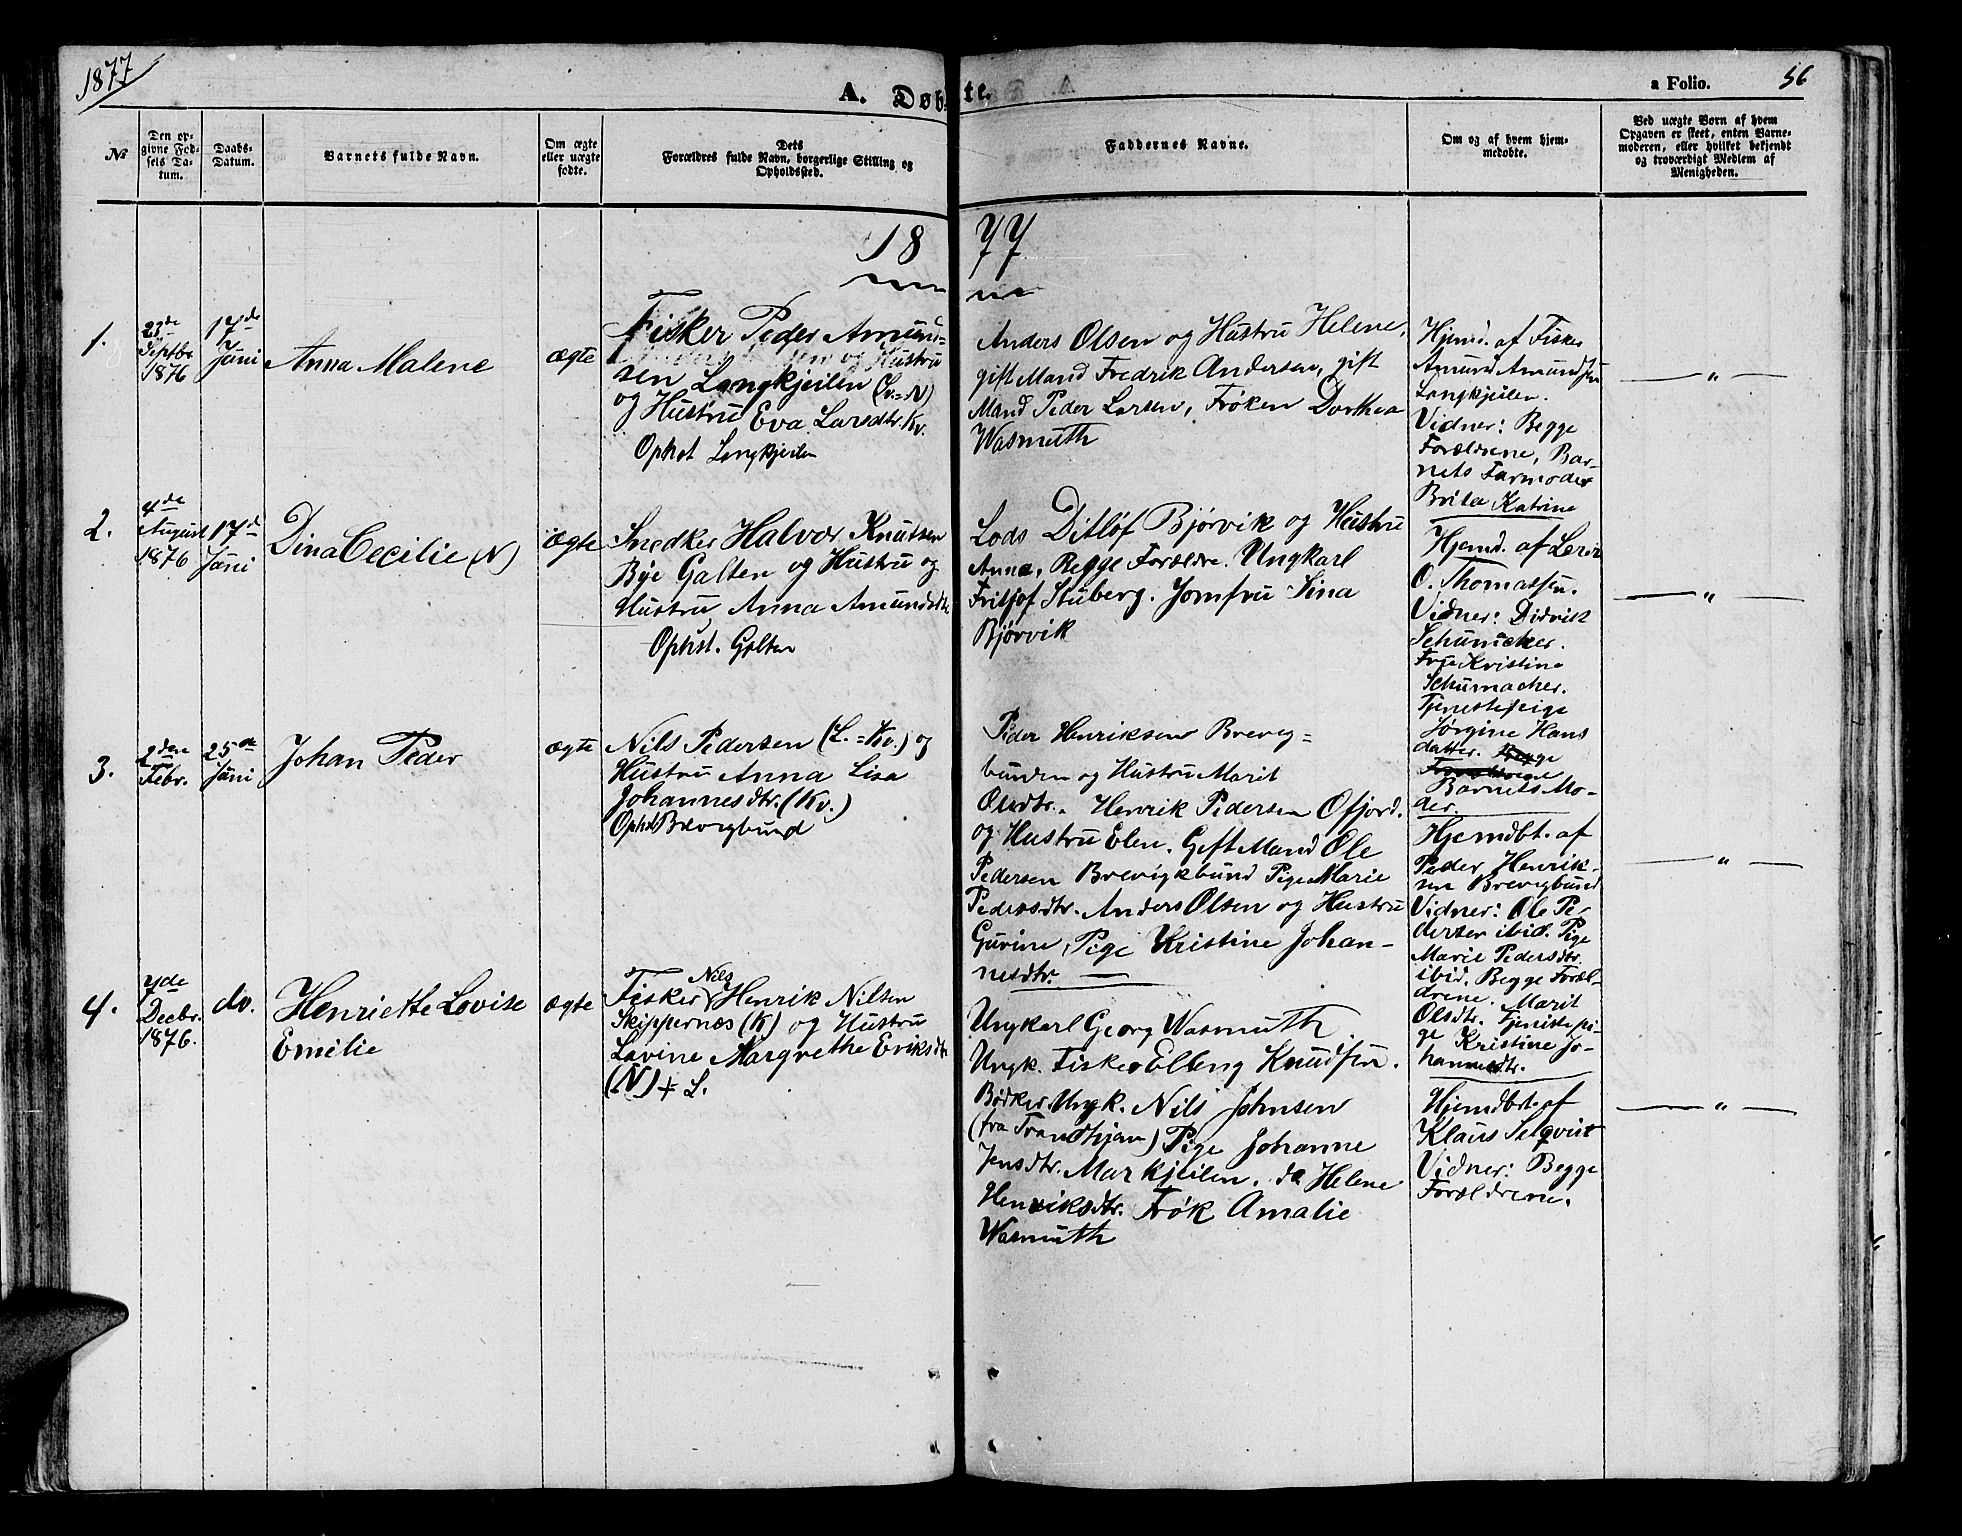 1877
A. Døbte.
a Folio. 56
№
Den op-
givne Fød-
sels Da-
tum.
Daabs-
Datum.
Barnets fulde Navn.
Om ægte
eller uægte
fødte.
Dets
Forældres fulde Navn, borgerlige Stilling og
Opholdssted.
Faddernes Navne.
Om og af hvem hjem-
medøbte.
Ved uægte Børn af hvem
Opgaven er skeet, enten Barne-
moderen, eller hvilket bekjendt
og troværdigt Medlem af
Menigheden.
1877
1.
23de
Septbr
1876
17de
Juni
Anna Malene
ægte
Fisker Peder Amund-
sen Langkjeilen (L.=N)
og Hustru Eva Larsdtr. Kv.
Ophst Langkjeilen
Anders Olsen og Hustru Helene,
gift Mand Fredrik Andersen, gift
Mand Peder Larsen, Frøken Dorthea
Wasmuth
Hjemd. af Fisker
Amund Amundsen
Langkjeilen.
Vidner: Begge
Forældrene, Bar-
nets Farmoder
Brita Katrine
— " —
2.
4de
August
1876
17de
Juni
Dina Cecilie (N)
ægte
Snedker Halvor Knutsen
Bye Galten og Hustru og
Hustru Anna Amundsdtr
Ophst. Galten
Lods Ditløf Bjørvik og Hustru
Anna. Begge Forældre. Ungkarl
Fritjof Stuberg. Jomfru Sina
Bjørvik
Hjemd. af
O. Thomassen.
Vidner: Didrick
Schumacker.
Frue Kristine
Schumacher.
Tjenestepige
Jørgine Hans
datter. Begge
Forældrene
Barnets Mo-
der.
— " —
3.
2den
Febr.
25de
Juni
Johan Peder
ægte
Nils Pedersen (L.=Kv.) og
Hustru Anna Lisa
Johannesdtr. (Kv.)
Ophst Brevigbund
Peder Henriksen Brevig=
bunden og Hustru Marit
Olsdtr. Henrik Pedersen Ofjord.
og Hustru Elen. Gift Mand Ole
Pedersen Brevigkbund Pige Marie
Pedersdtr. Anders Olsen og Hustru
Gurine, Pige Kristine Johan-
nesdtr. —
Hjemdbt. af
Peder Henrik-
sen Brevigbund
Vidner: Ole Pe-
dersen ibid. Pige
Marie Pedersdtr.
ibid. Begge Foræl-
drene. Marit
Olsdtr. Tjenestepi-
ge Kristine Jo-
hannesdtr.
— " —
4.
7de
Decbr.
1876.
do.
Henriette Lovise
Emilie
ægte
Nils
Fisker Henrik Nilsen
Skippernæs (K) og Hustru
Lovine Margrethe Eriksdtr
(N) + L.
Ungkarl Georg Wasmuth.
Ungk. Fisker Elling Knudsen.
Bødker Ungk. Nils Johnsen
(fra Trondhjem) Pige Johanne
Jensdtr. Markjeilen. do Helene
Henriksdtr. Frøk Amalie
Wasmuth
Hjemdbt. af
Klaus Selqvist
Vidner: Begge
Forældrene.
— " —